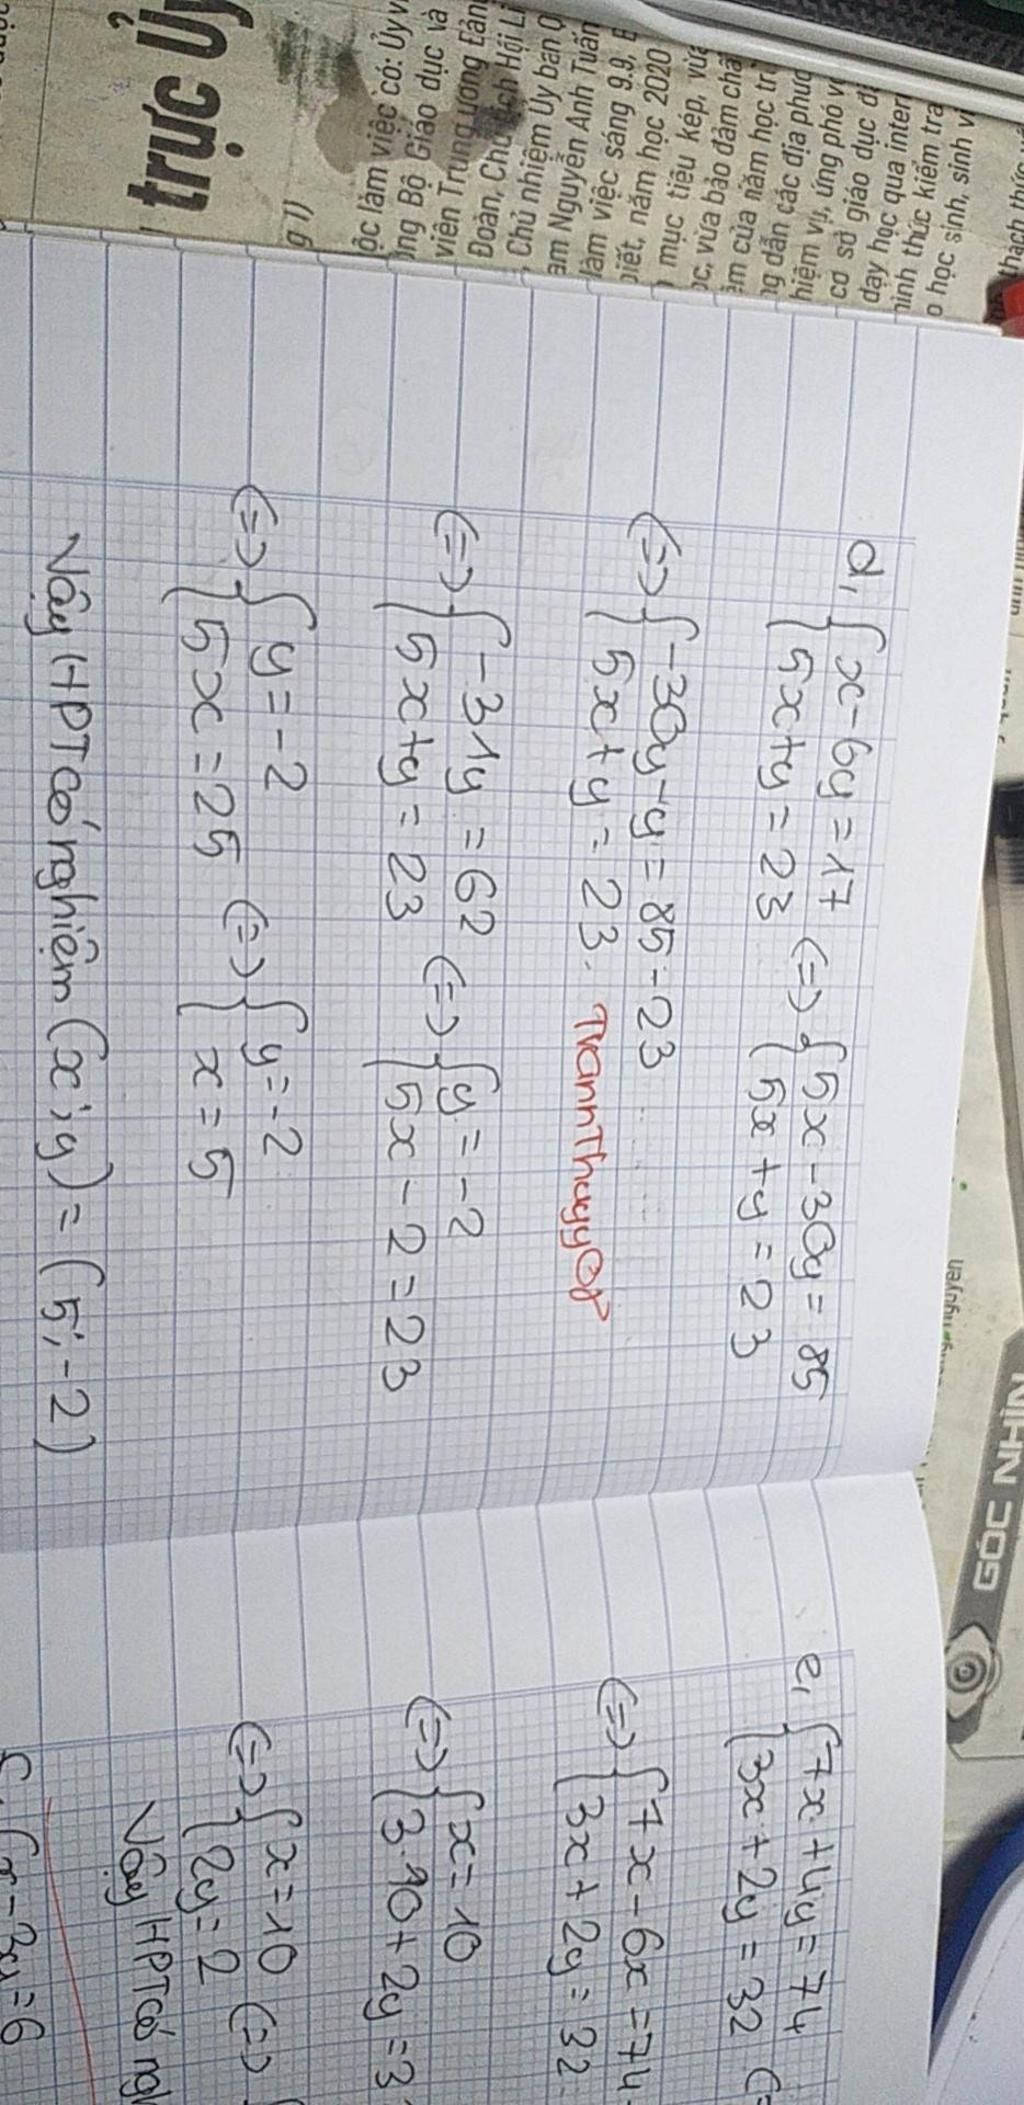 d, { x - 6y = 17 (=) { 5x - 30y = 85
{ 5x + y = 23 { 5x + y = 23
(=) { -30y - y = 85 - 23
{ 5x + y = 23.
TrannThuyy
(=) { -31y = 62 (=) { y = -2
{ 5x + y = 23 { 5x - 2 = 23
(=) { y = -2 (=) { y = -2
{ 5x = 25 { x = 5
Vậy HPT có nghiệm (x; y) = (5; -2)
e, { 7x + 4y = 74
{ 3x + 2y = 32
(=) { 7x - 6x = 74
{ 3x + 2y = 32
(=) { x = 10
{ 3.10 + 2y = 3
(=) { x = 10 (=)
{ 2y = 2
Vậy HPT có
trực Ủy
ộc làm việc có: Ủy v
ng Bộ Giáo dục và
viên Trung ương Đản
Đoàn, Chủ tịch Hội Li
, Chủ nhiệm Ủy ban Q
am Nguyễn Anh Tuấn
làm việc sáng 9.9, B
biết, năm học 2020
mục tiêu kép, vừa
ọc, vừa bảo đảm chấ
ệm của năm học tr
ng dẫn các địa phươ
hiệm vụ, ứng phó v
cơ sở giáo dục đ
dạy học qua inter
hình thức kiểm tra
o học sinh, sinh vi
thách thức
GÓC NHÌN
nguyên